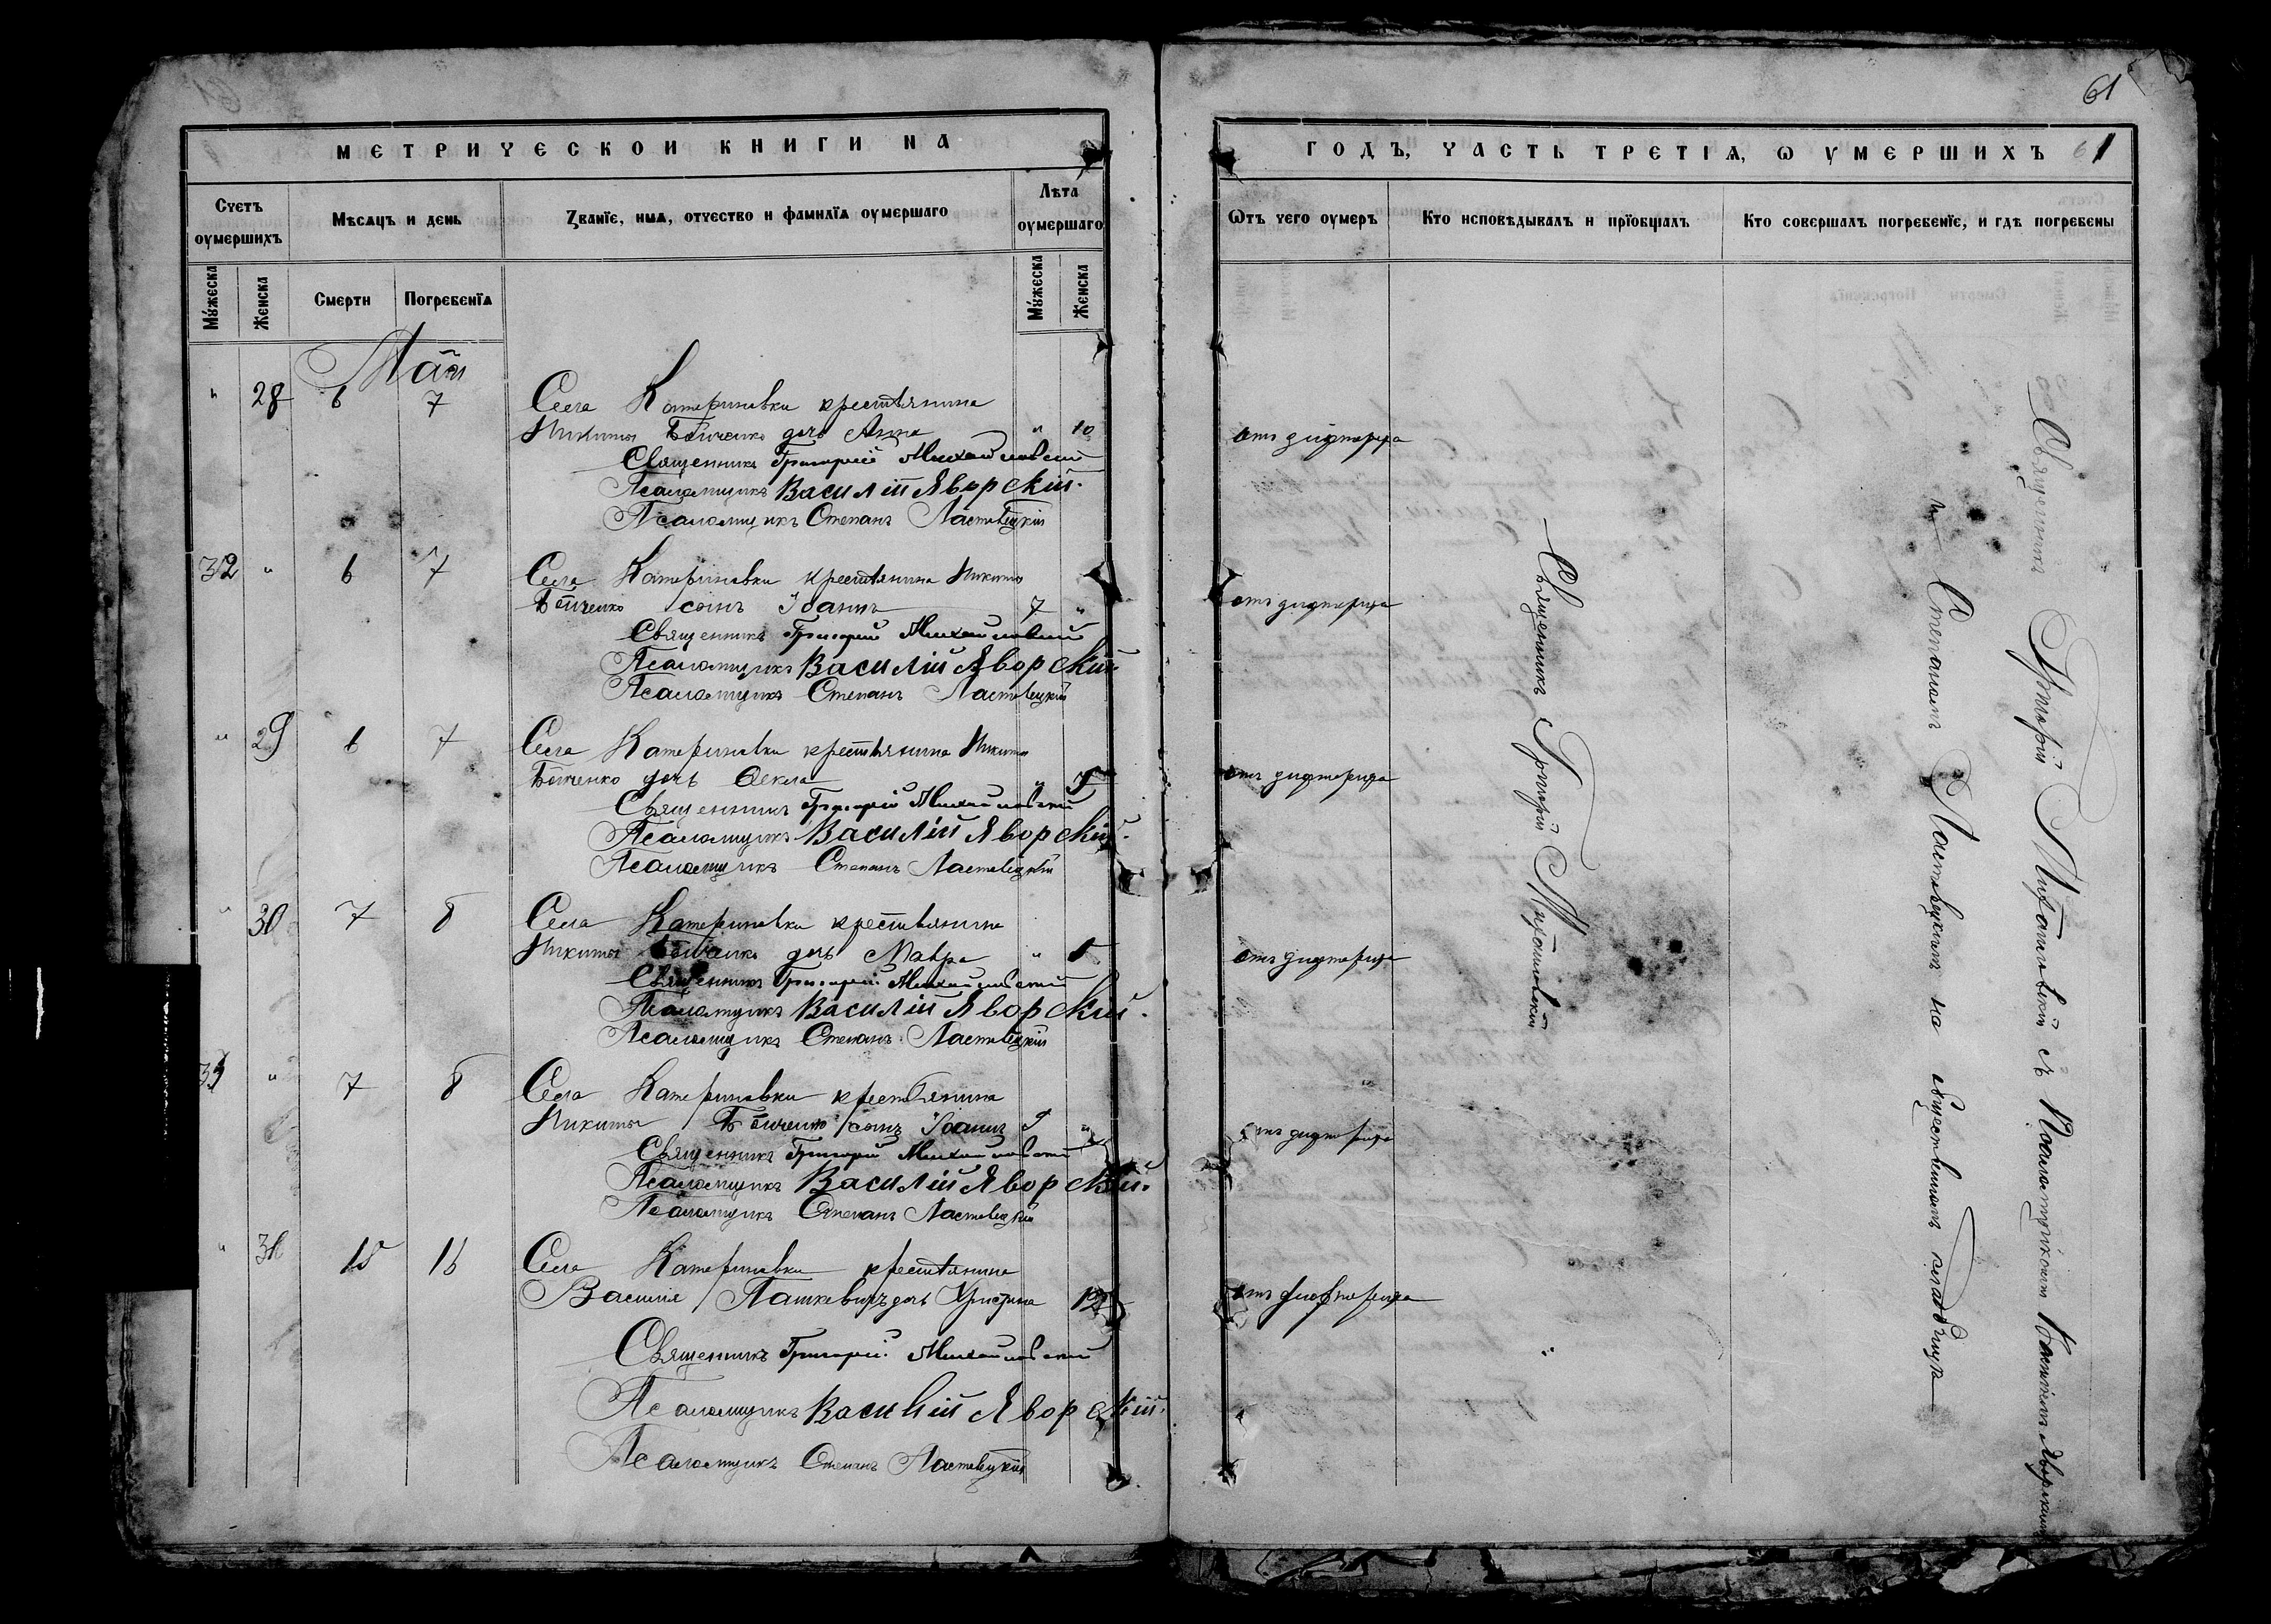 61
МЕТРИЧЕСКОЙ КНИГИ НА
Счетъ оумершихъ
Мѣсяцъ и день
Званїе, имя, отчество и фамилїя оумершаго
Лѣта оумершаго
Мꙋжеска
Женска
Смерти
Погребенїя
Мꙋжеска
Женска
Май
" 28 6 7 Села Катериновки крестьянина
Никиты Бойченко дочь Анна " 10
Священникъ Григорій Михайловскій
Псаломщикъ Василій Яворскій.
Псаломщикъ Степанъ Ластовецкій
32 " 6 7 Села Катериновки крестьянина Никиты
Бойченко сынъ Іоаннъ 7 "
Священникъ Григорій Михайловскій
Псаломщикъ Василій Яворскій
Псаломщикъ Степанъ Ластовецкій
" 29 6 7 Села Катериновки крестьянина Никиты
Бойченко дочь Ѳекла "
Священникъ Григорій Михайловскій
Псаломщикъ Василій Яворскій.
Псаломщикъ Степанъ Ластовецкій
" 30 7 8 Села Катериновки крестьянина
Никиты Бойченко дочь Мавра "
Священникъ Григорій Михайловскій
Псаломщикъ Василій Яворскій.
Псаломщикъ Степанъ Ластовецкій
33 " 7 8 Села Катериновки крестьянина
Никиты Бойченко сынъ Іоаннъ "
Священникъ Григорій Михайловскій
Псаломщикъ Василій Яворскій.
Псаломщикъ Степанъ Ластовецкій
" 31 15 16 Села Катериновки крестьянина
Василія Пашкевичъ дочь Христина 12
Священникъ Григорій Михайловскій
Псаломщикъ Василій Яворскій.
Псаломщикъ Степанъ Ластовецкій
ГОДЪ, ЧАСТЬ ТРЕТІЯ, Ѡ ѸМЕРШИХЪ 61
Ѿтъ чего оумеръ
Кто исповѣдывалъ и прїобщалъ
Кто совершалъ погребенїе, и гдѣ погребены
отъ дифтерита
отъ дифтерита
отъ дифтерита
отъ дифтерита
отъ дифтерита
отъ дифтерита
Священникъ Григорій Михайловскій
Священникъ Григорій Михайловскій съ Псаломщикомъ Василіемъ Яворскимъ
и Степаномъ Ластовецкимъ на общественномъ кладбищѣ